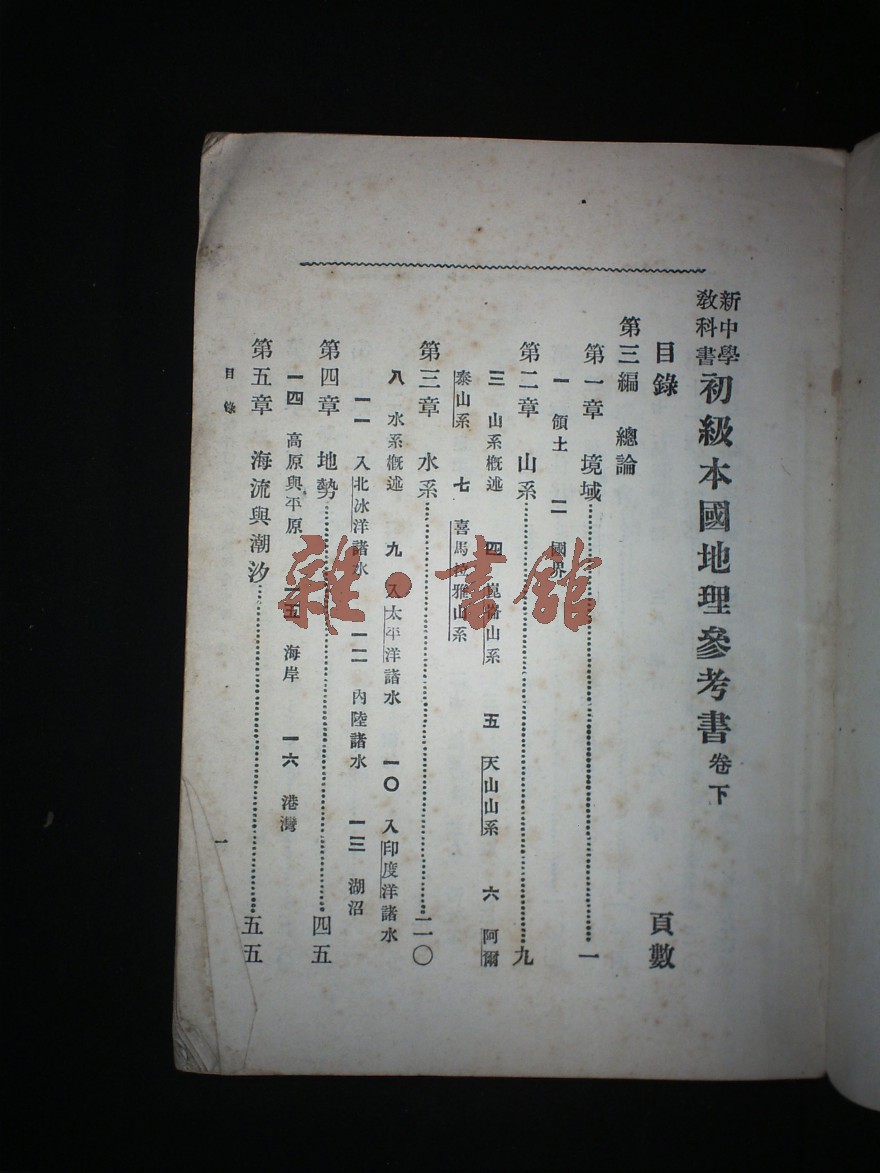 新中學教科書 初級本國地理參考書 卷下
目錄 頁數
第三編 總論
第一章 境域 一
一 領土 二 國界
第二章 山系 九
三 山系概述 四 崑崙山系 五 天山山系 六 阿爾
泰山系 七 喜馬拉雅山系
第三章 水系 二〇
八 水系概述 九 入太平洋諸水 一〇 入印度洋諸水
一一 入北冰洋諸水 一二 內陸諸水 一三 湖沼
第四章 地勢 四五
一四 高原與平原 一五 海岸 一六 港灣
第五章 海流與潮汐 五五
目錄 一
雜·書館